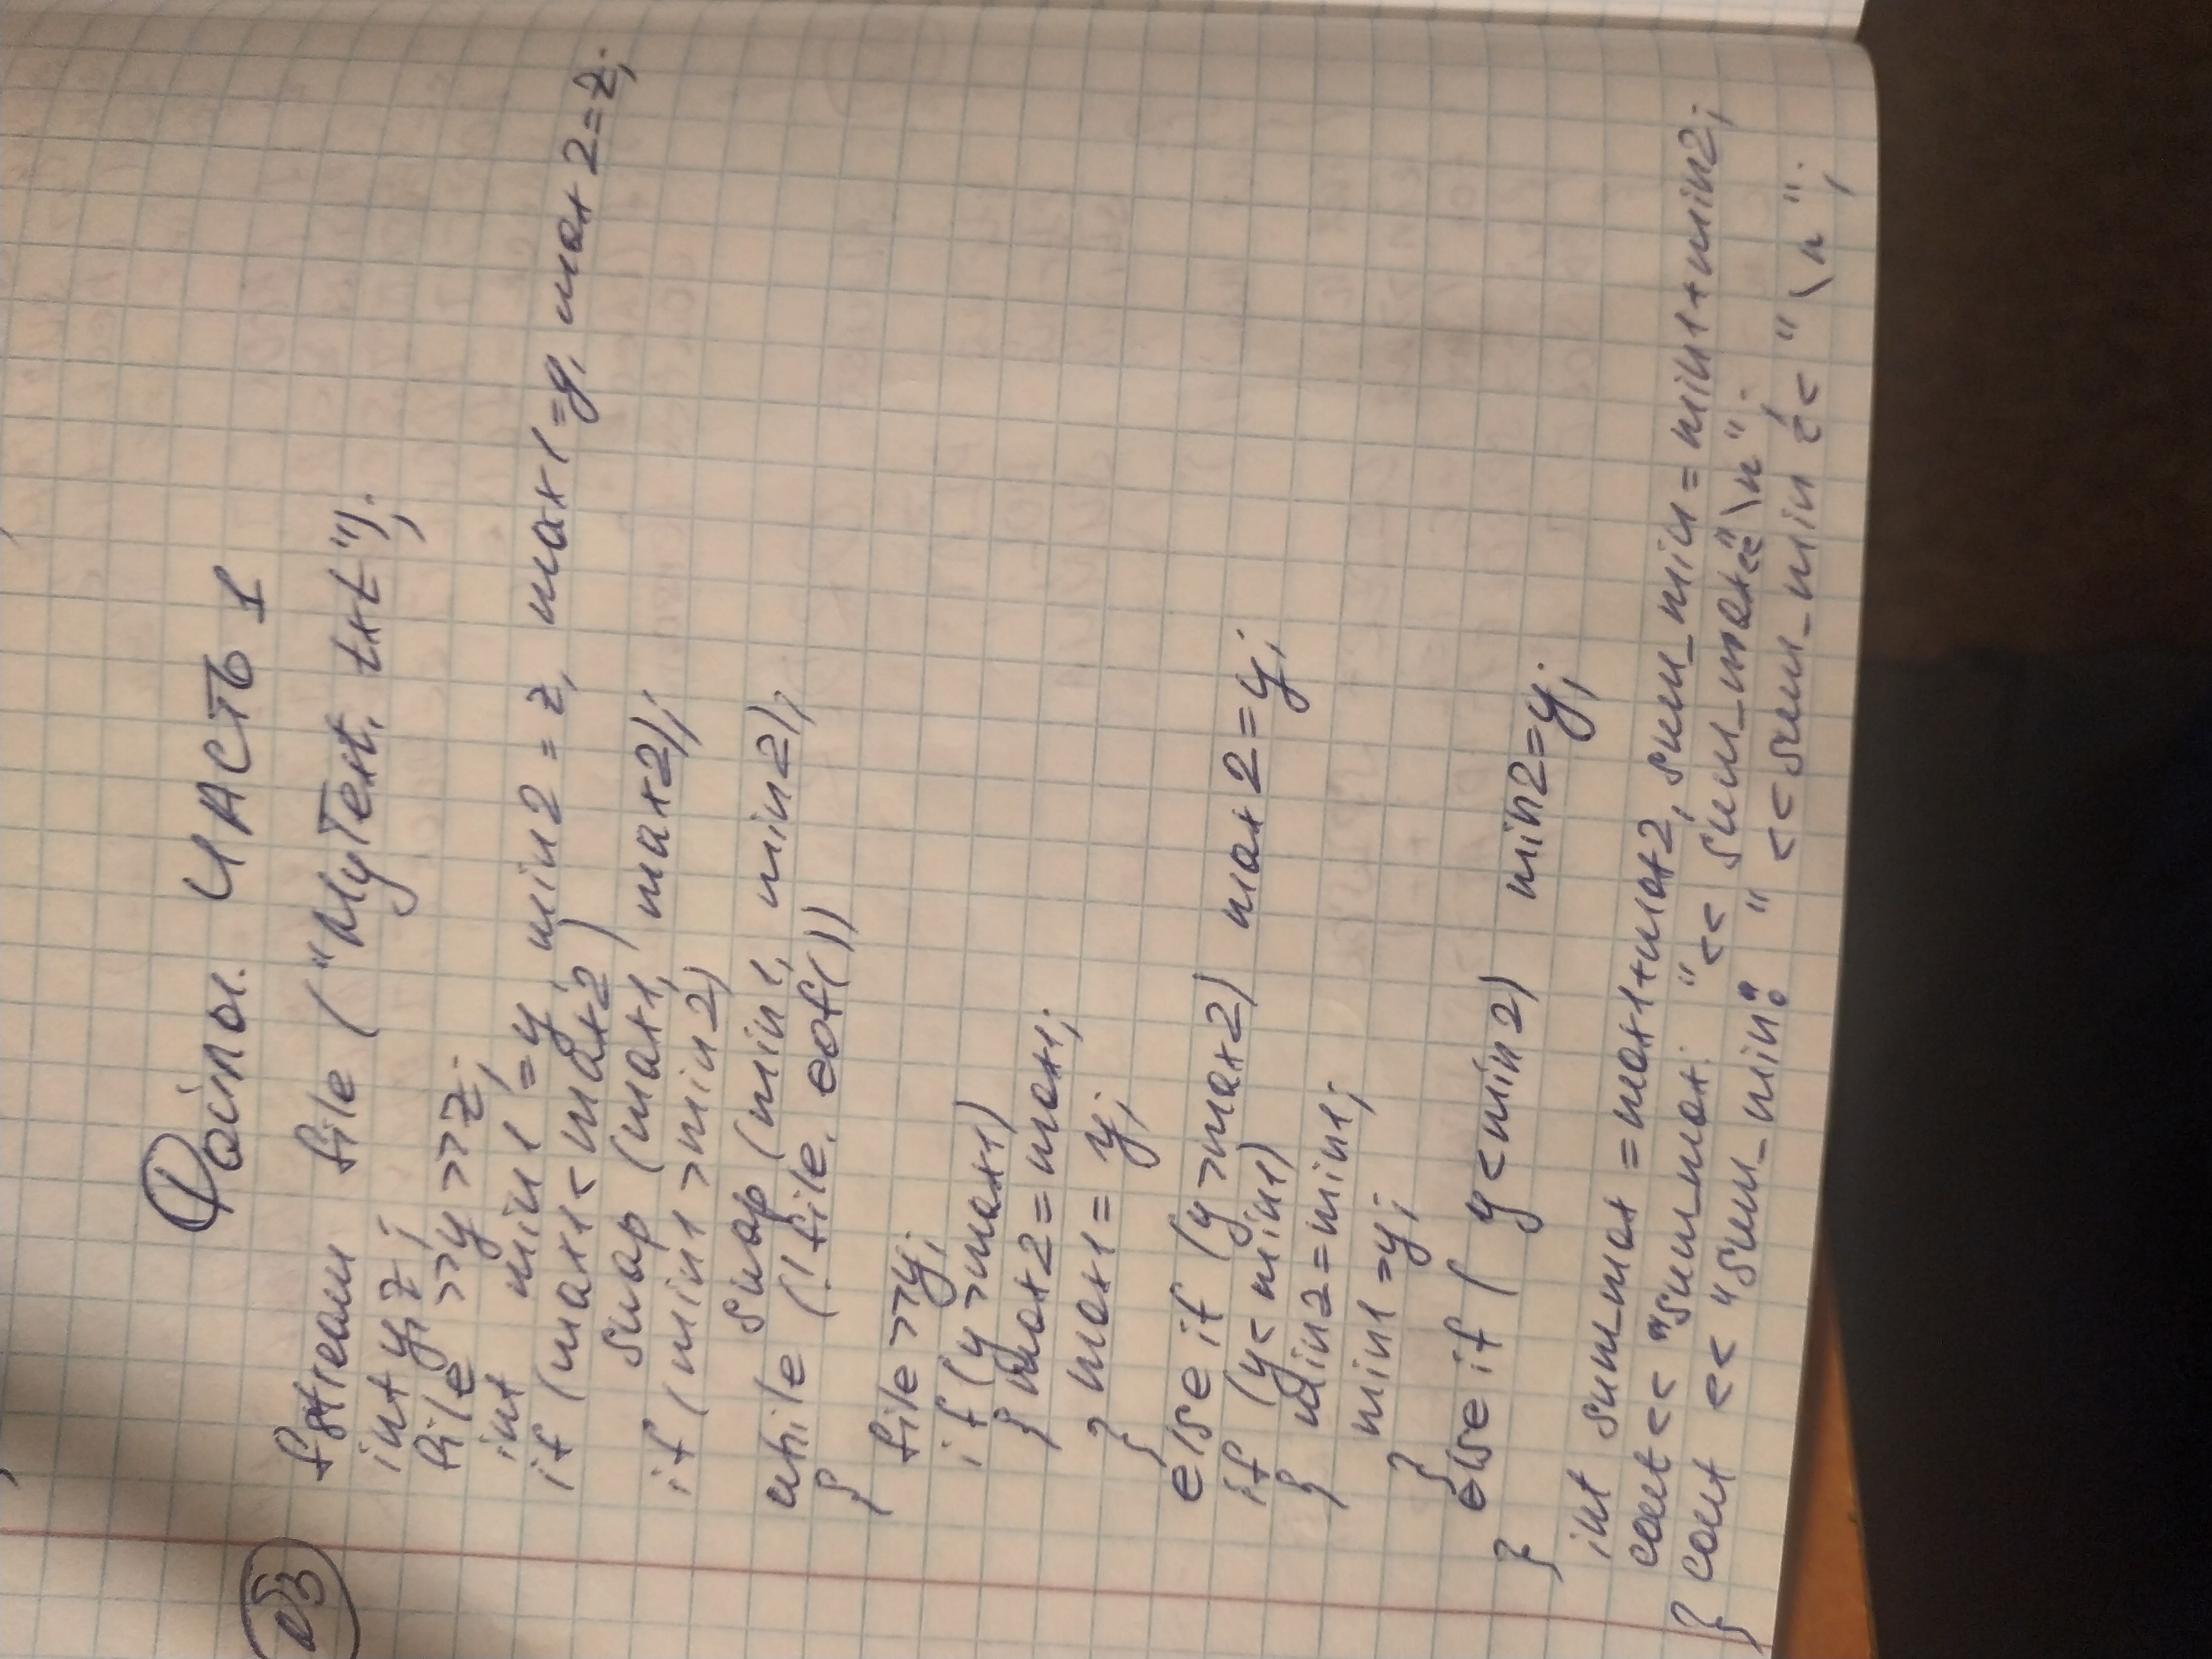 Файлы. ЧАСТЬ 1
fstream file ("MyText.txt");
int y, z;
file >>y >>z;
int min1 = y, min2 = z, max1 = y, max2 = z;
if (max1 < max2)
swap (max1, max2);
if (min1 > min2)
swap (min1, min2);
while (!file.eof())
{
file >>y;
if (y > max1)
{ max2 = max1;
max1 = y;
}
else if (y > max2) max2 = y;
if (y < min1)
{ min2 = min1;
min1 = y;
}
else if ( y < min2) min2 = y;
}
int sum_max = max1+max2, sum_min = min1+min2;
cout << "sum_max: " << sum_max << "\n";
cout << "sum_min: " << sum_min << "\n";
}